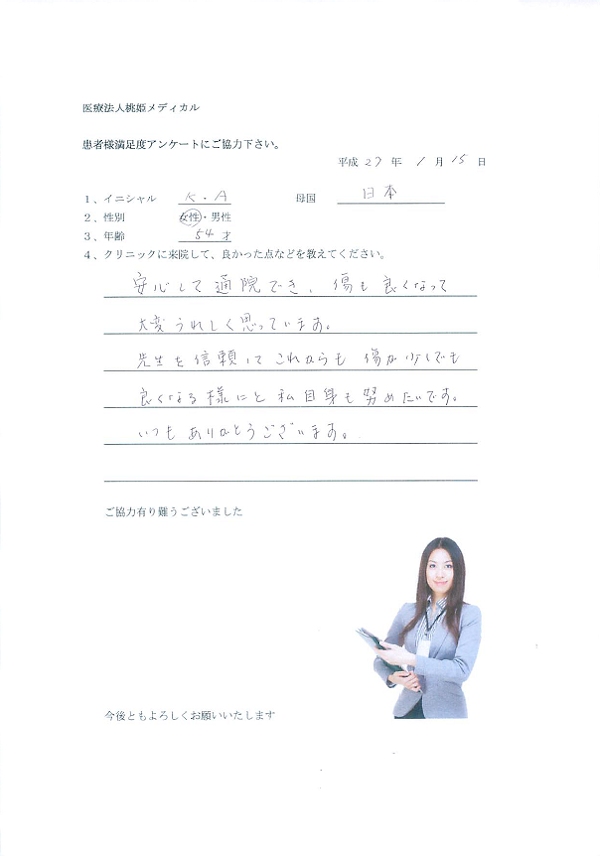 医療法人桃姫メディカル
患者様満足度アンケートにご協力下さい。
平成 27 年 1 月 15 日
1、イニシャル K・A 母国 日本
2、性別 女性・男性
3、年齢 54才
4、クリニックに来院して、良かった点などを教えてください。
安心して通院でき、傷も良くなって
大変うれしく思っています。
先生を信頼してこれからも傷が少しでも
良くなる様にと私自身も努めたいです。
いつもありがとうございます。
ご協力有り難うございました
今後ともよろしくお願いいたします